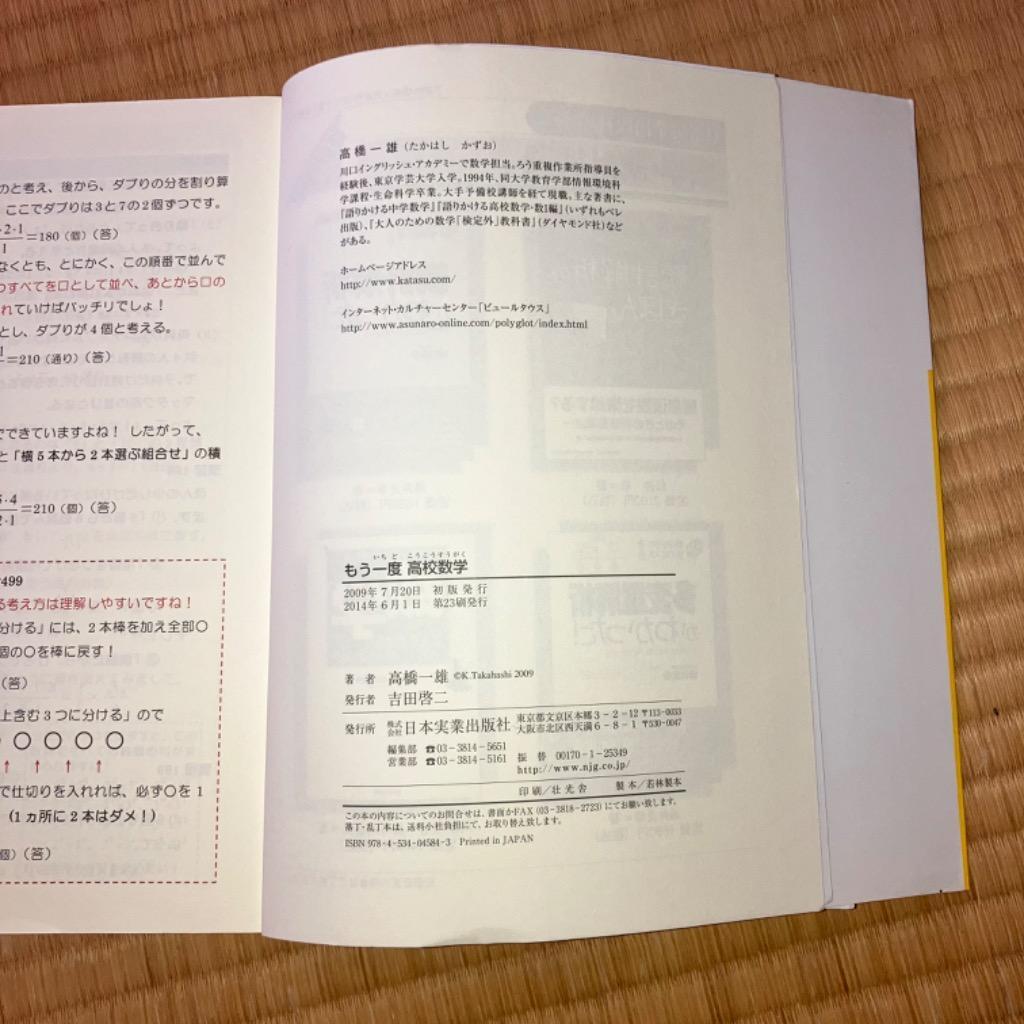 のと考え、後から、ダブりの分を割り算
ここでダブりは3と7の2個ずつです。
・2・1
1
=180（個）（答）
なくとも、とにかく、この順番で並んで
つすべてを口として並べ、あとから口の
れていけばバッチリでしょ！
とし、ダブりが4個と考える。
=210（通り）（答）
できていますよね！ したがって、
と「横5本から2本選ぶ組合せ」の積
5・4
2・1
=210（個）（答）
499
る考え方は理解しやすいですね！
分ける」には、2本棒を加え全部○
個の○を棒に戻す！
（答）
上含む3つに分ける」ので
○ ○ ○ ○
↑ ↑ ↑ ↑
で仕切りを入れれば、必ず○を1
（1ヵ所に2本はダメ！）
個）（答）
高橋一雄（たかはし かずお）
川口イングリッシュ・アカデミーで数学担当。ろう重複作業所指導員を
経験後、東京学芸大学入学。1994年、同大学教育学部情報環境科
学課程・生命科学卒業。大手予備校講師を経て現職。主な著書に、
『語りかける中学数学』『語りかける高校数学・数I編』（いずれもベレ
出版）、『大人のための数学「検定外」教科書』（ダイヤモンド社）など
がある。
ホームページアドレス
http://www.katasu.com/
インターネット・カルチャーセンター「ビュールタウス」
http://www.asunaro-online.com/polyglot/index.html
いちど こうこうすうがく
もう一度 高校数学
2009年7月20日 初版発行
2014年6月1日 第23刷発行
著 者 高橋一雄 ©K.Takahashi 2009
発行者 吉田啓二
発行所 株式会社日本実業出版社 東京都文京区本郷3－2－12 〒113-0033
大阪市北区西天満6－8－1 〒530-0047
編集部 ☎03－3814－5651
営業部 ☎03－3814－5161 振 替 00170－1－25349
http://www.njg.co.jp/
印刷／壮光舎 製本／若林製本
この本の内容についてのお問合せは、書面かFAX（03－3818－2723）にてお願い致します。
落丁・乱丁本は、送料小社負担にて、お取り替え致します。
ISBN 978-4-534-04584-3 Printed in JAPAN